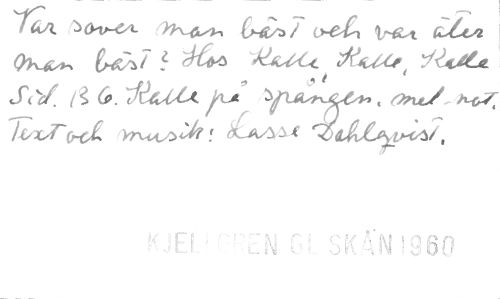 Var sover man bäst och var äter
man bäst? Hos Kalle, Kalle, Kalle
Sid. 136. Kalle på spången. mel-not.
Text och musik: Lasse Dahlqvist.
KJELLGREN GL SKÅN 1960